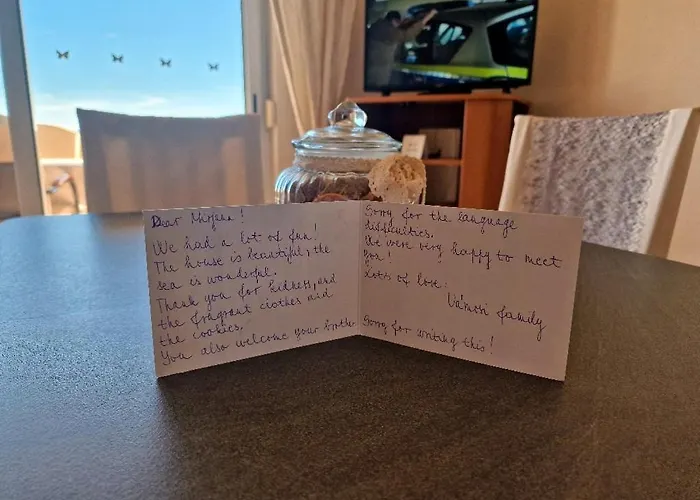 Dear Mirjana!
We had a lot of fun!
The house is beautiful, the
sea is wonderful.
Thank you for kidness, and
the fragrant clothes and
the cookies.
You also welcome your brother
Sorry for the language
difficulties.
We were very happy to meet
you!
Lots of love:
Vámosi family
Sorry for writing this!